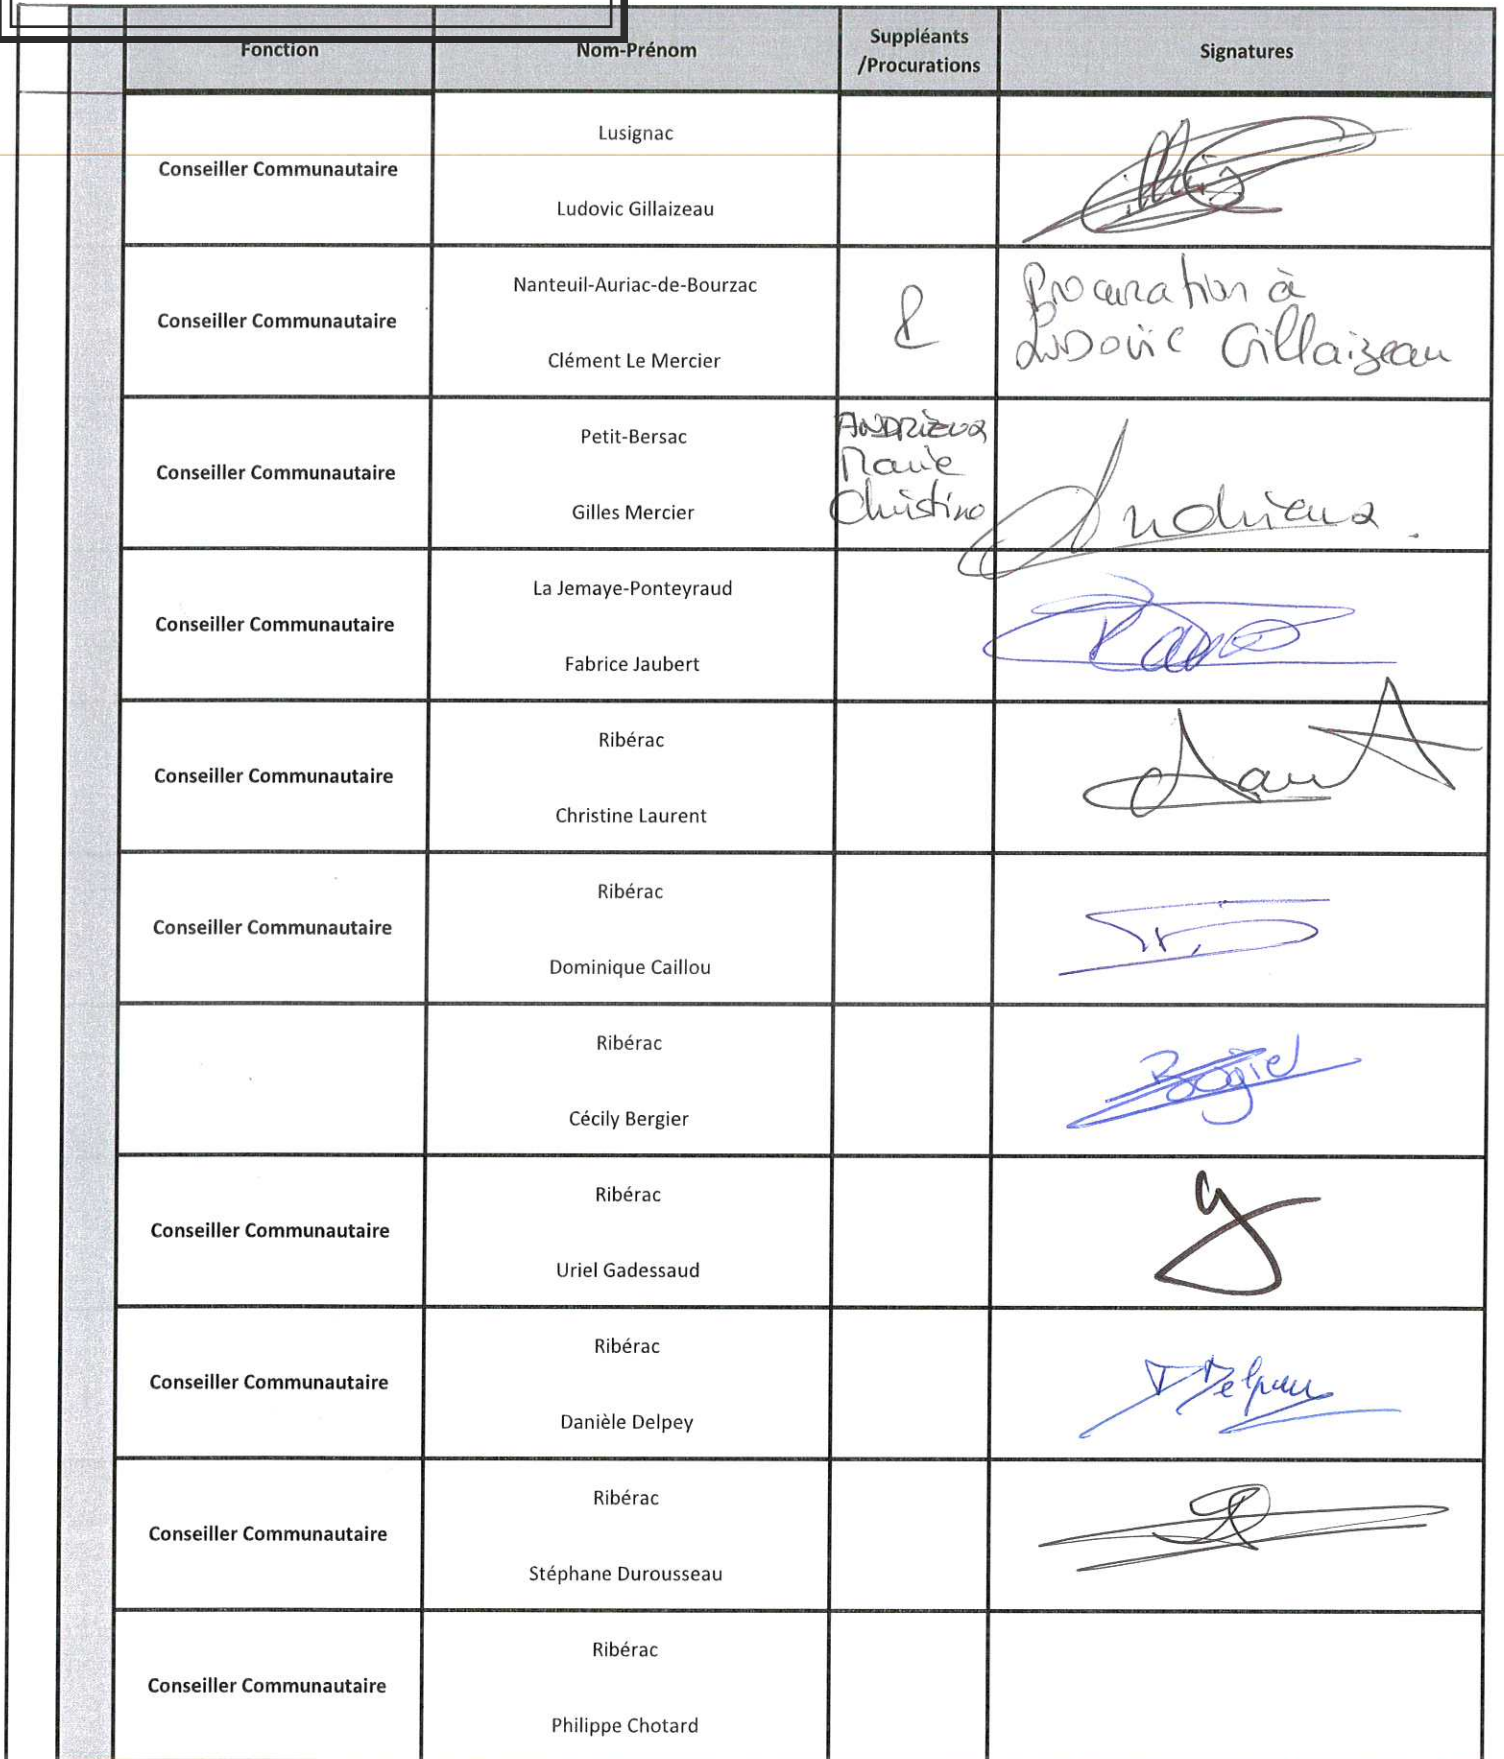 Fonction
Nom-Prénom
Suppléants
/Procurations
Signatures
Conseiller Communautaire
Lusignac
Ludovic Gillaizeau
Conseiller Communautaire
Nanteuil-Auriac-de-Bourzac
Clément Le Mercier
P
Procuration à
Ludovic Gillaizeau
Conseiller Communautaire
Petit-Bersac
Gilles Mercier
ANDRIEUX
Marie
Christine
Andrieux.
Conseiller Communautaire
La Jemaye-Ponteyraud
Fabrice Jaubert
Conseiller Communautaire
Ribérac
Christine Laurent
Conseiller Communautaire
Ribérac
Dominique Caillou
Ribérac
Cécily Bergier
Conseiller Communautaire
Ribérac
Uriel Gadessaud
Conseiller Communautaire
Ribérac
Danièle Delpey
Conseiller Communautaire
Ribérac
Stéphane Durousseau
Conseiller Communautaire
Ribérac
Philippe Chotard